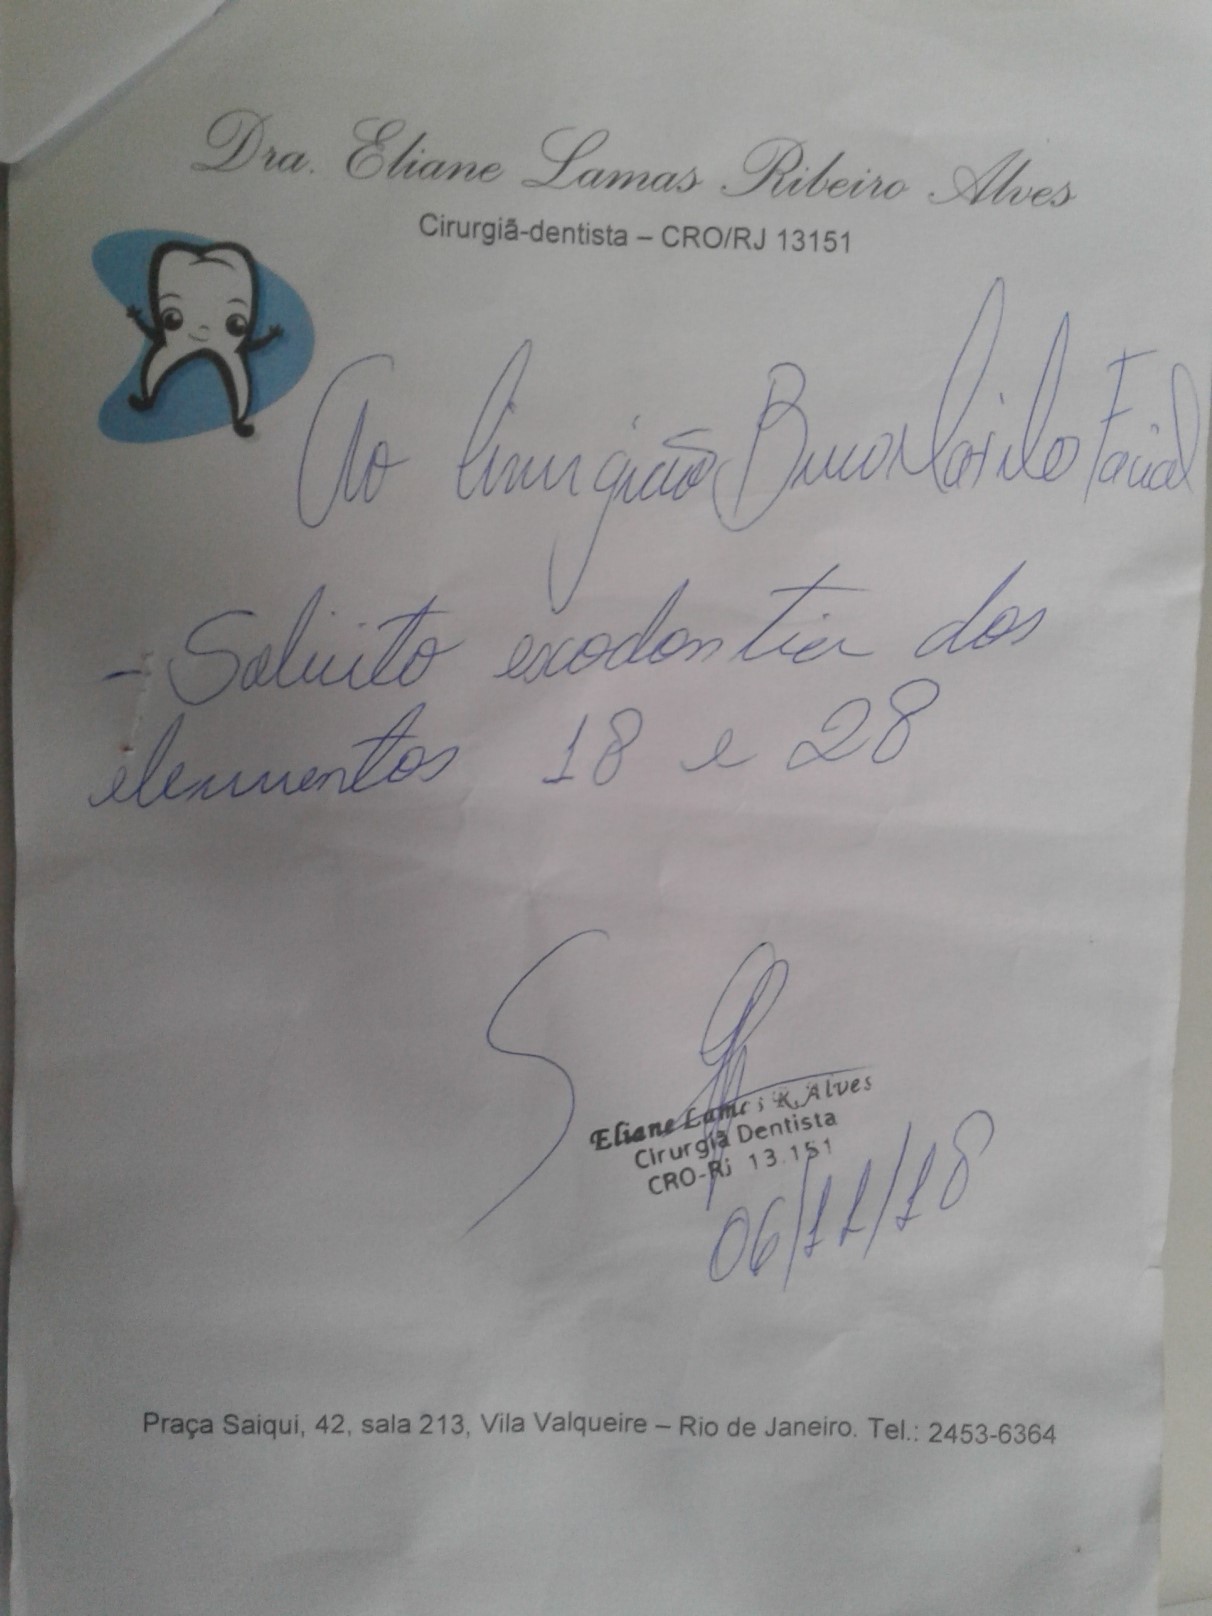 Dra. Eliane Lamas Ribeiro Alves
Cirurgiã-dentista – CRO/RJ 13151
Ao Cirurgião Buco Maxilo Facial
- Solicito exodontia dos
elementos 18 e 28
Eliane Lamas R. Alves
Cirurgiã Dentista
CRO-Rj 13.151
06/11/18
Praça Saiqui, 42, sala 213, Vila Valqueire – Rio de Janeiro. Tel.: 2453-6364